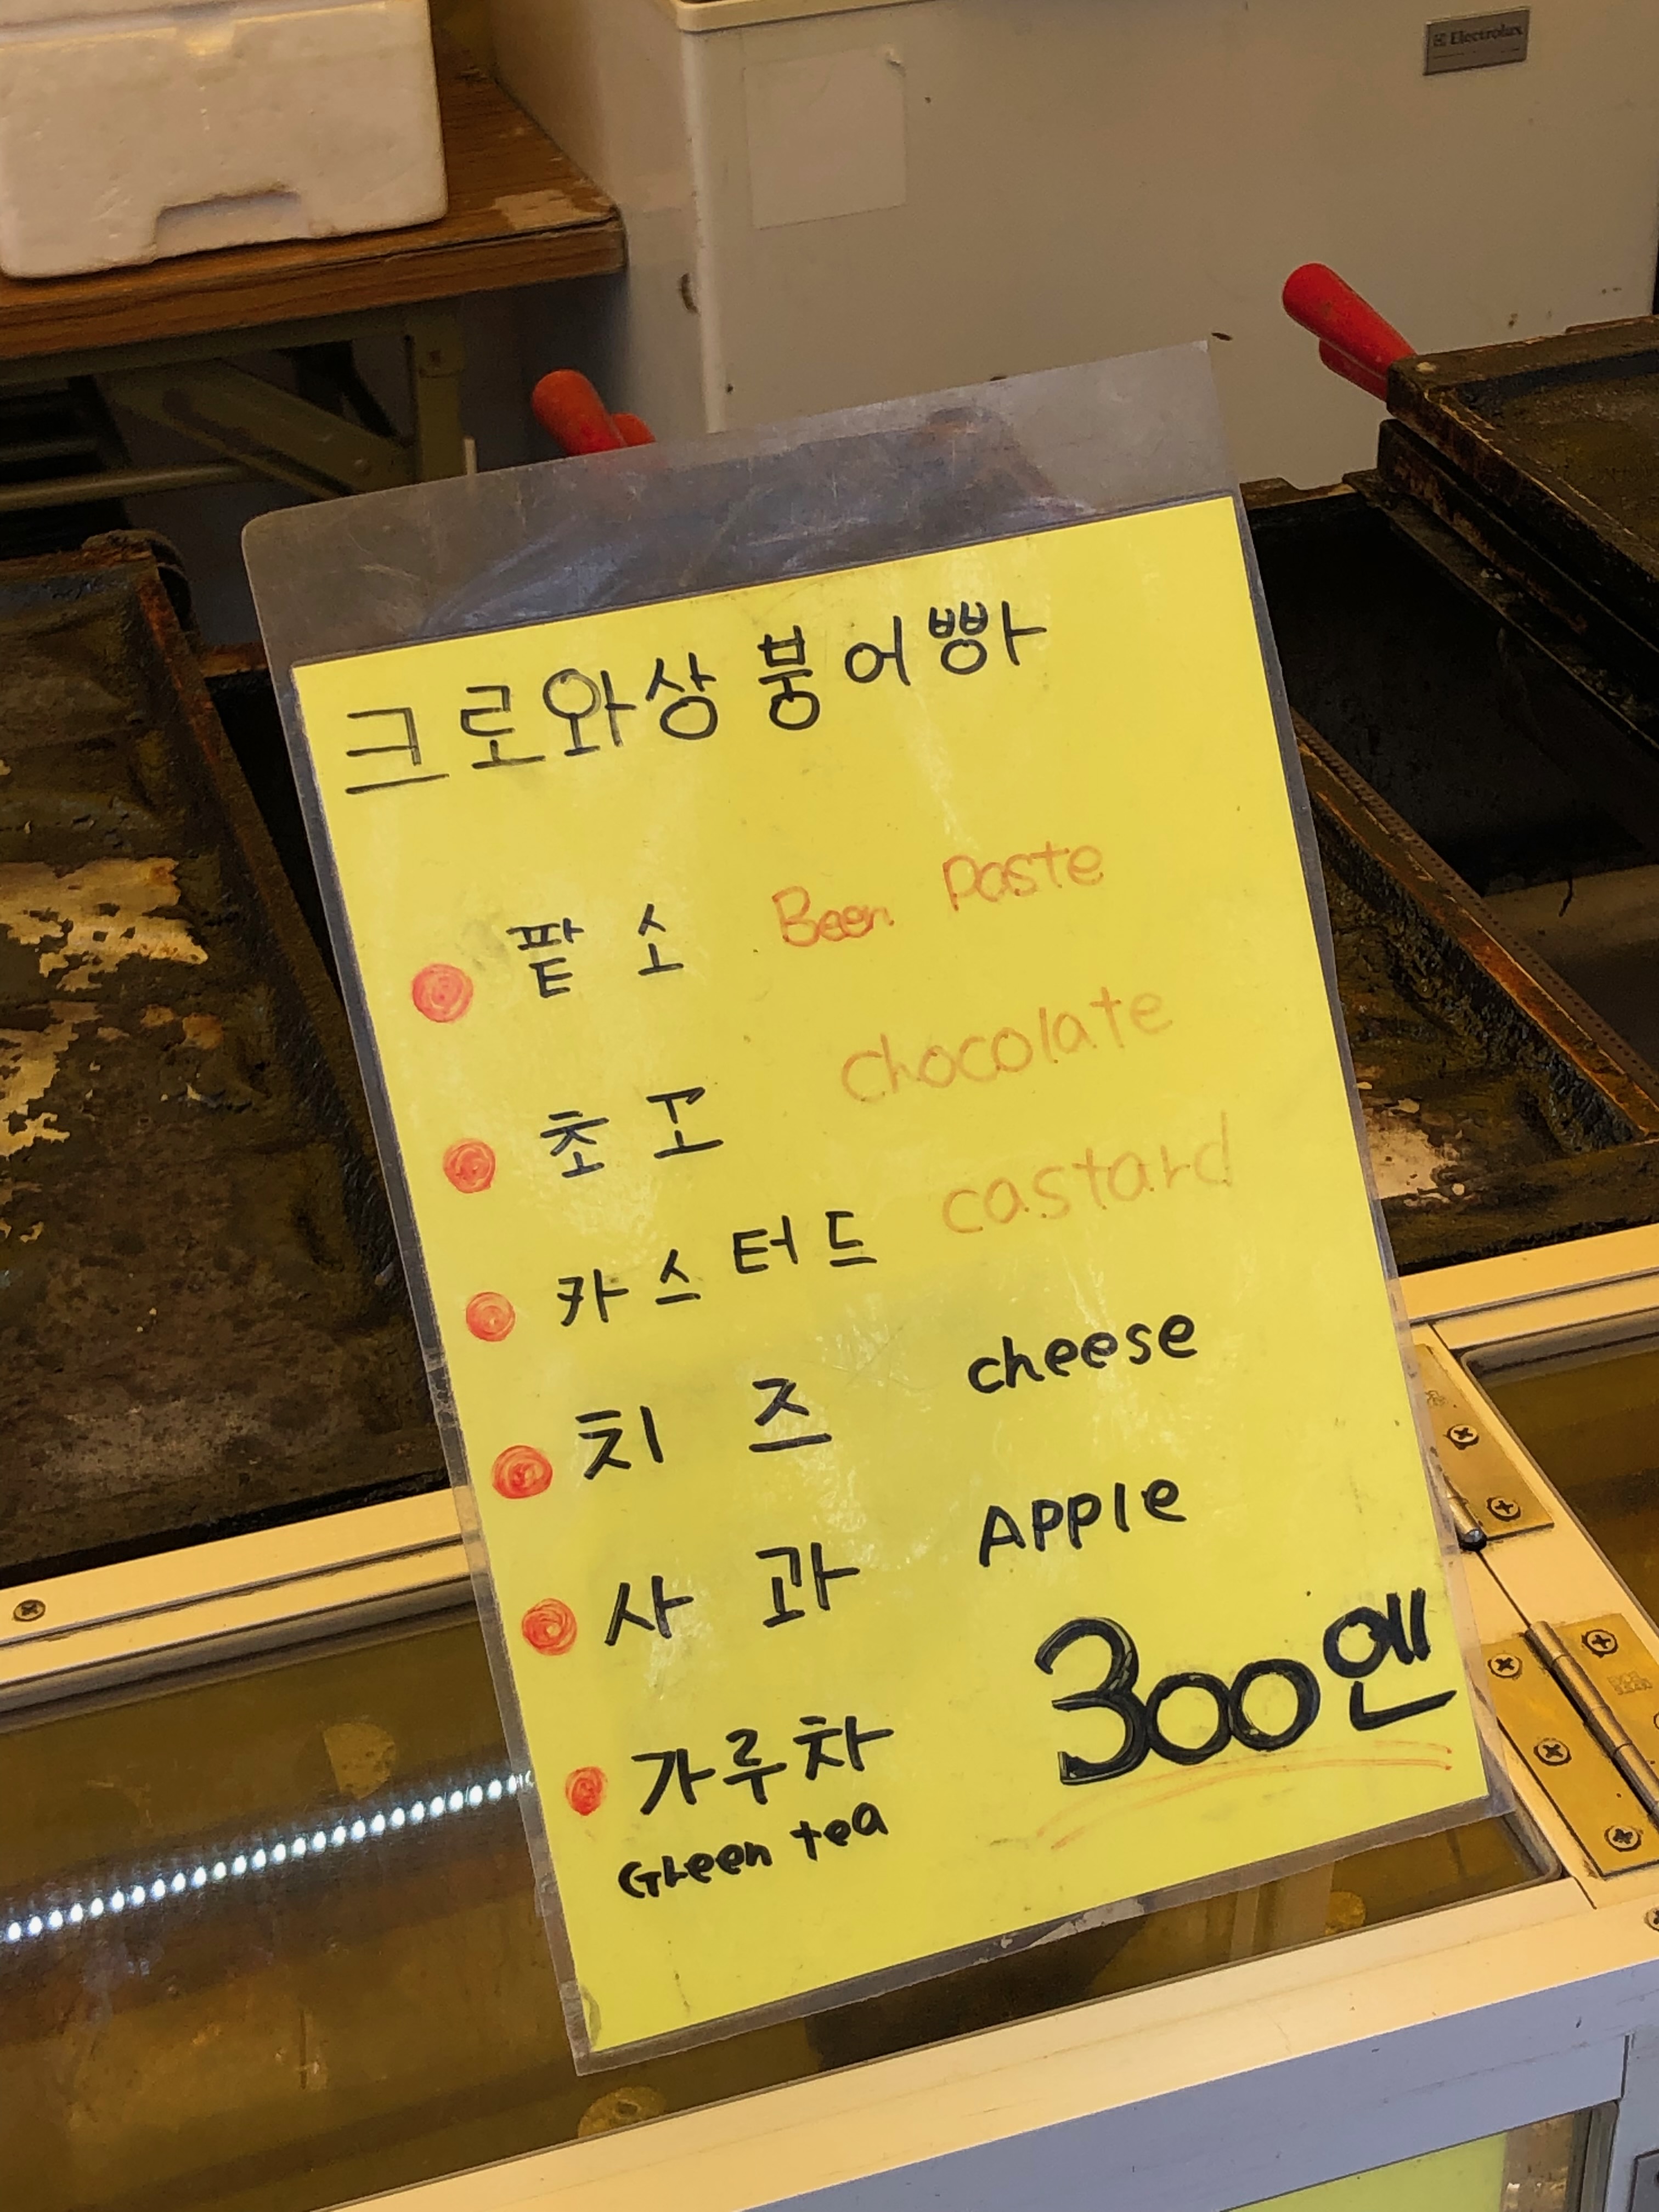 Electrolux
크로와상 붕어빵
팥 소 Been paste
초 코 chocolate
카스터드 castard
치 즈 cheese
사 과 Apple
가루차
Green tea
300엔